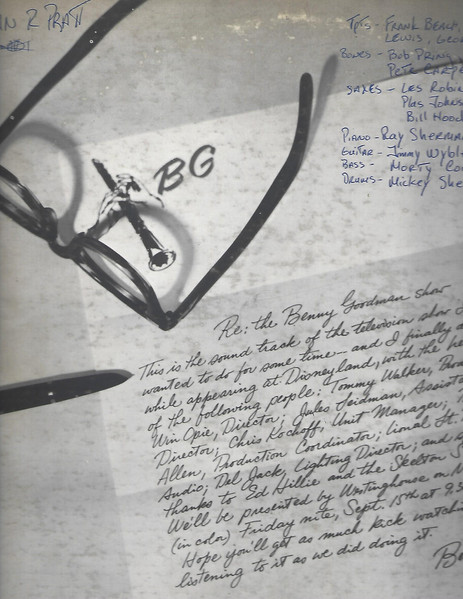 N R PRATT
#1
TPTS - FRANK BEACH,
LEWIS, GEO
BONES - BOB PRING
PETE CARP
SAXES - LES ROBIN
Plas Johns
Bill Hood
PIANO - Ray SHERMA
GUITAR - Jimmy Wybl
BASS - MORTY CO
DRUMS - Mickey She
BG
Re: the Benny Goodman show
This is the sound track of the television show I
wanted to do for some time - and I finally d
while appearing at Disneyland, with the he
of the following people: Tommy Walker,
Win Opie, Director; Jules Seidman, Assist
Director; Chris Kochoff, Unit Manager;
Allen, Production Coordinator; Lional St.
Audio; Del Jack, Lighting Director; and
thanks to Ed Hillie and the Skelton S
We'll be presented by Westinghouse on N
(in color) Friday nite, Sept. 15th at 9:3
Hope you'll get as much kick watchi
listening to it as we did doing it.
Be